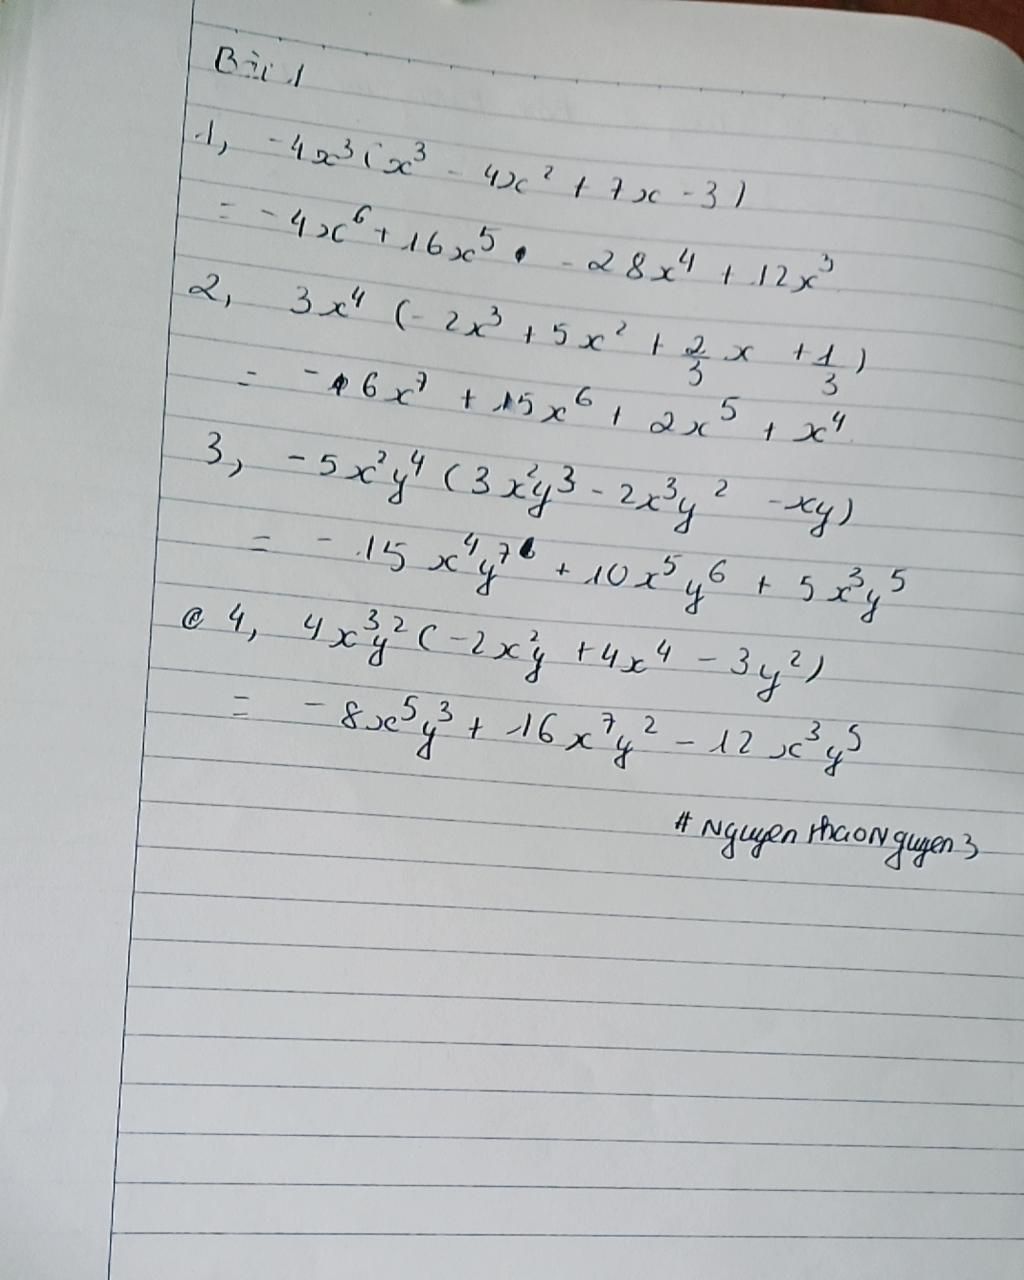 Bài 1
1, -4x³(x³ - 4x² + 7x - 3)
= -4x⁶ + 16x⁵ - 28x⁴ + 12x³
2, 3x⁴ (-2x³ + 5x² + 2/3 x + 1/3)
= -6x⁷ + 15x⁶ + 2x⁵ + x⁴
3, -5x²y⁴ (3x²y³ - 2x³y² - xy)
= -15x⁴y⁷ + 10x⁵y⁶ + 5x³y⁵
@ 4, 4x³y² (-2x²y + 4x⁴ - 3y²)
= -8x⁵y³ + 16x⁷y² - 12x³y⁵
# NguyenthaoNguyen3